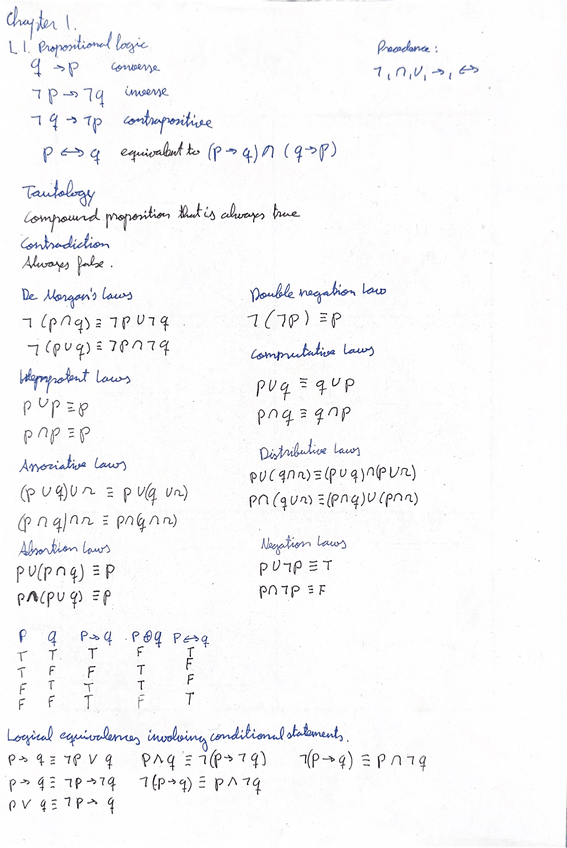 Chapter 1.
L1. Propositional logic
Precedence:
q → p converse
¬, ∩, ∪, →, ↔
¬p → ¬q inverse
¬q → ¬p contrapositive
p ↔ q equivalent to (p → q) ∩ (q → p)
Tautology
Compound proposition that is always true
Contradiction
Always false.
De Morgan's Laws
¬(p ∩ q) ≡ ¬p ∪ ¬q
¬(p ∪ q) ≡ ¬p ∩ ¬q
Double negation law
¬(¬p) ≡ p
Idempotent Laws
p ∪ p ≡ p
p ∩ p ≡ p
Commutative Laws
p ∪ q ≡ q ∪ p
p ∩ q ≡ q ∩ p
Associative Laws
(p ∪ q) ∪ r ≡ p ∪ (q ∪ r)
(p ∩ q) ∩ r ≡ p ∩ (q ∩ r)
Distributive Laws
p ∪ (q ∩ r) ≡ (p ∪ q) ∩ (p ∪ r)
p ∩ (q ∪ r) ≡ (p ∩ q) ∪ (p ∩ r)
Absortion Laws
p ∪ (p ∩ q) ≡ p
p ∩ (p ∪ q) ≡ p
Negation Laws
p ∪ ¬p ≡ T
p ∩ ¬p ≡ F
P q P→q P⊕q P↔q
T T T F T
T F F T F
F T T T F
F F T F T
Logical equivalences involving conditional statements.
p → q ≡ ¬p ∨ q p ∧ q ≡ ¬(p → ¬q) ¬(p → q) ≡ p ∩ ¬q
p → q ≡ ¬p → ¬q ¬(p → q) ≡ p ∧ ¬q
p ∨ q ≡ ¬p → q